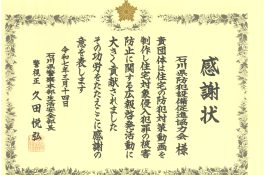 感謝状
石川県防犯設備促進協力会 様
貴団体は住宅防犯対策動画を
制作し住宅対象侵入犯罪の被害
防止に関する広報啓発活動に
大きく貢献されました
その功労をたたえここに感謝の
意を表します
令和七年三月十四日
石川県警察本部生活安全部長
警視正 久田悦弘